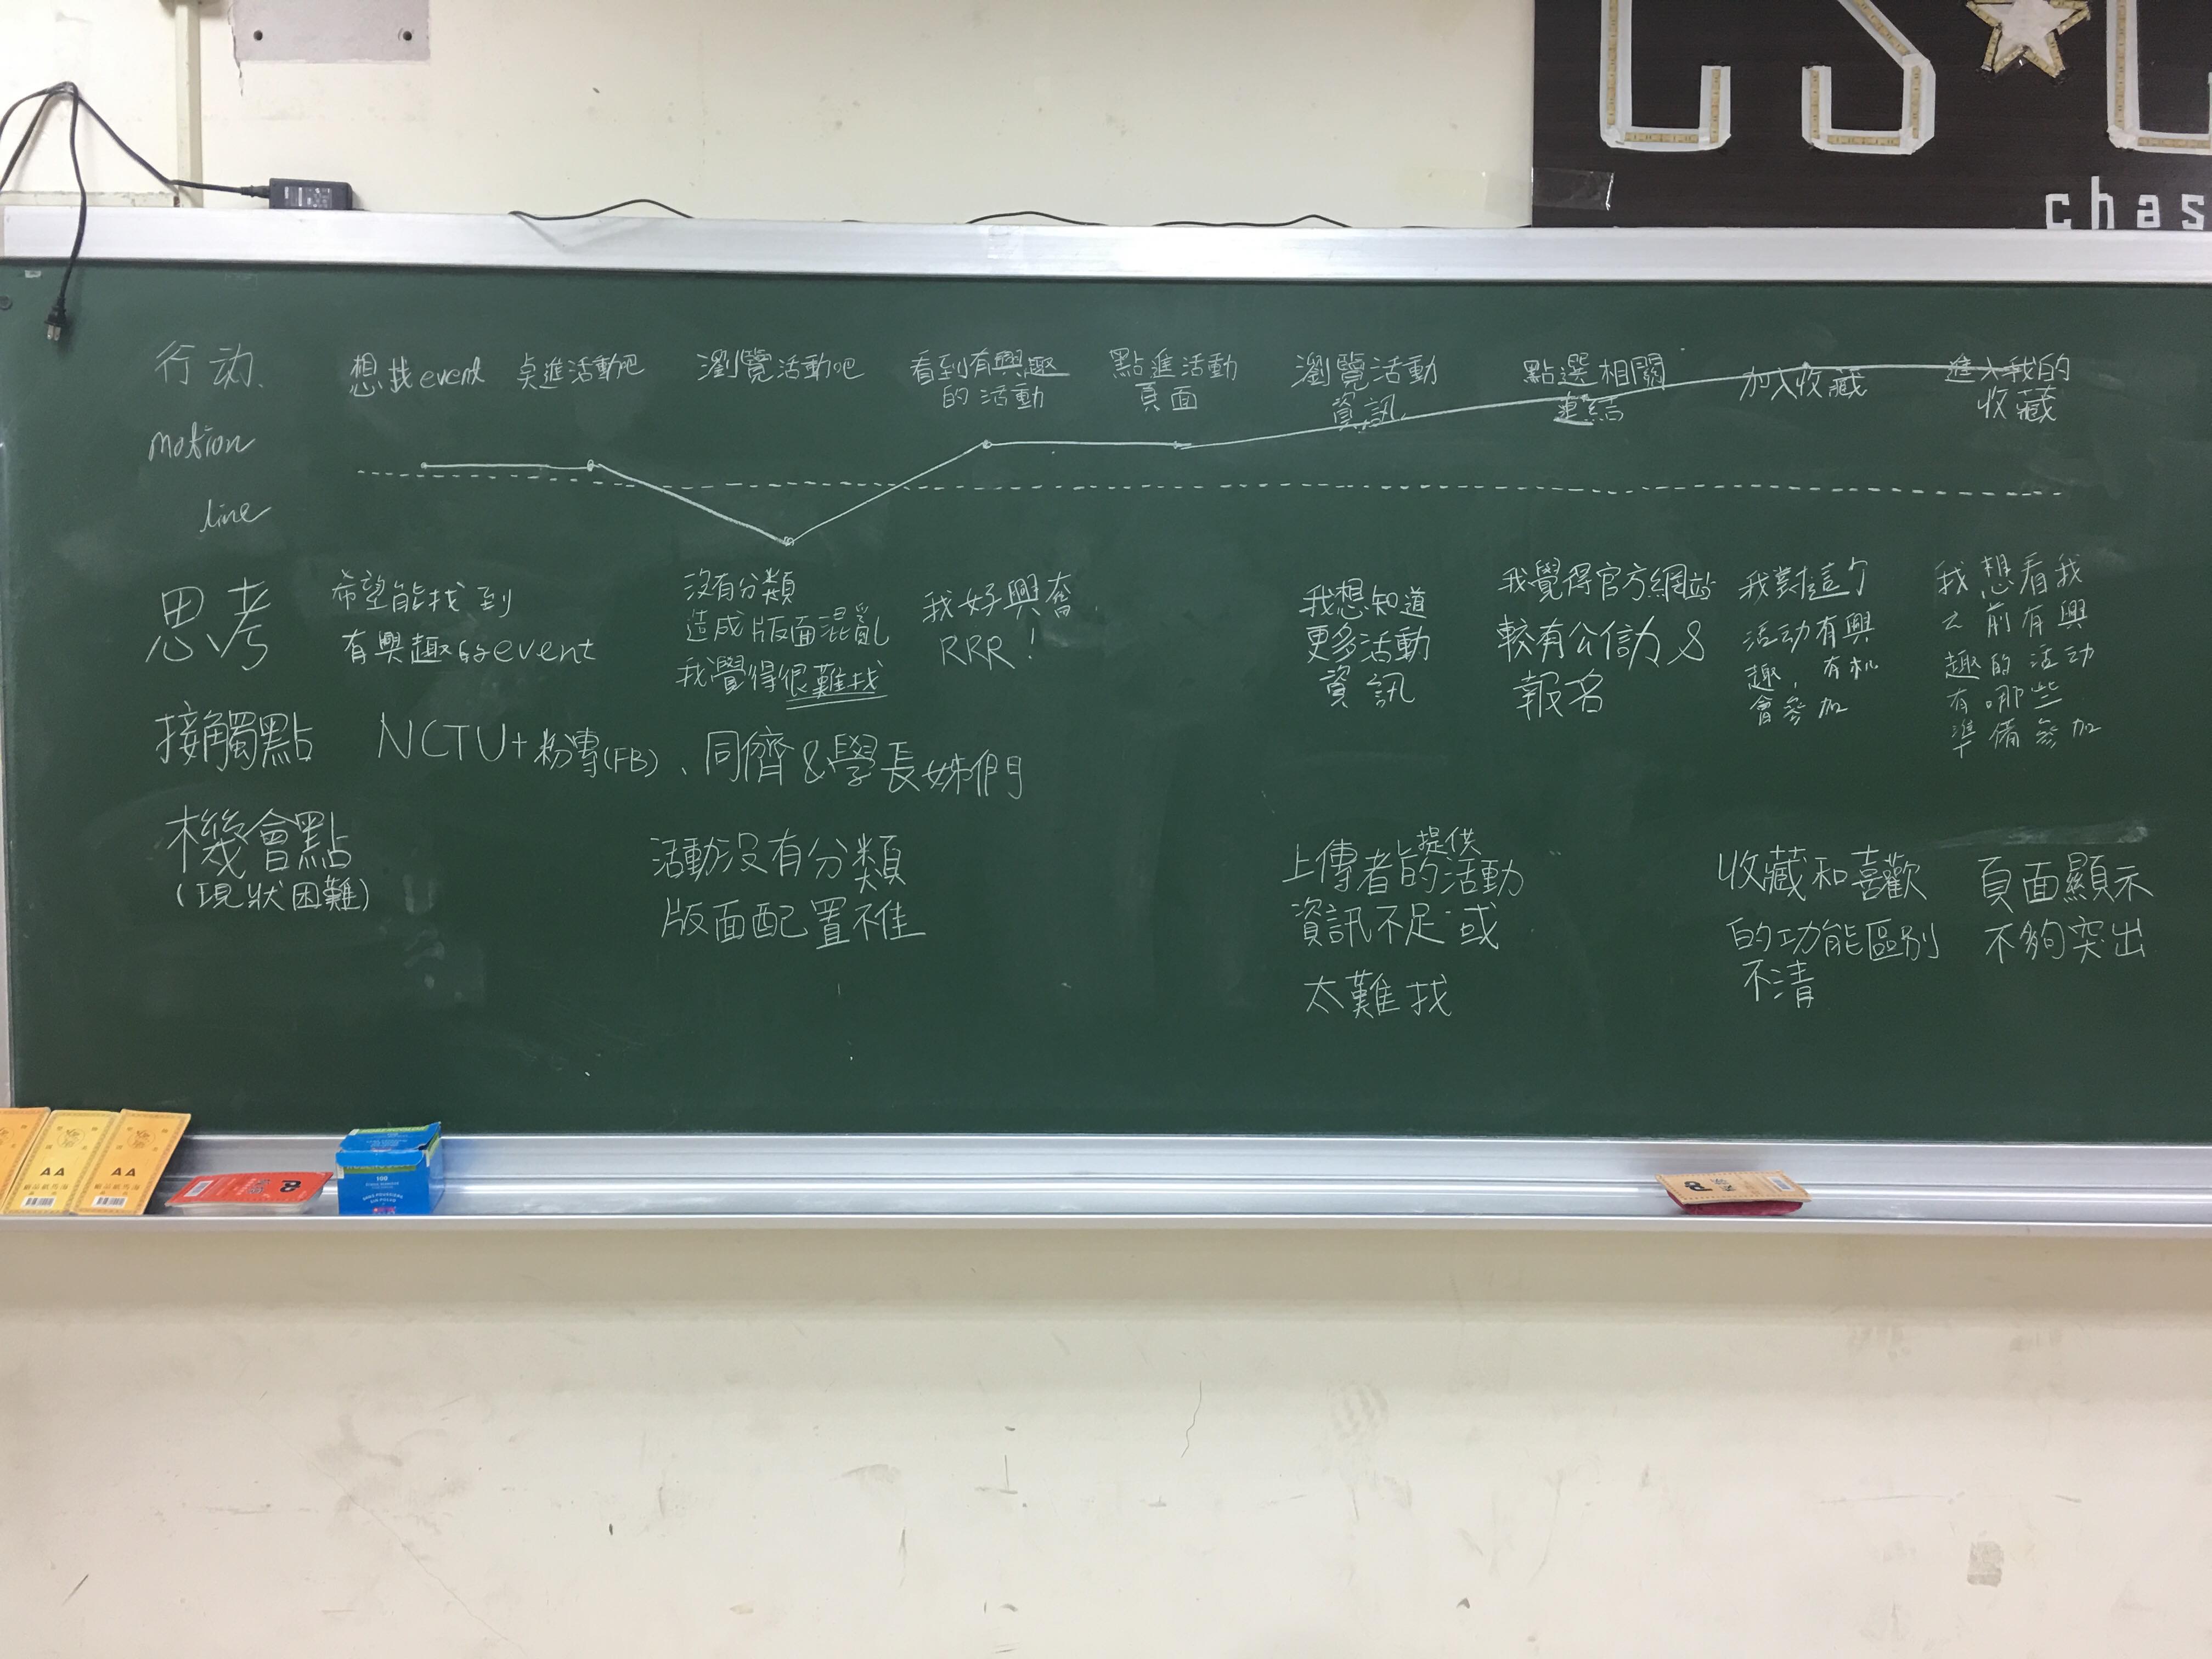 CS
chas
行动
想找event
点進活動吧
瀏覽活動吧
看到有興趣
的活動
點進活動
頁面
瀏覽活動
資訊
點選相關
連結
加入收藏
進入我的
收藏
motion
line
思考
希望能找到
有興趣的event
沒有分類
造成版面混亂
我覺得很難找
我好興奮
RRR!
我想知道
更多活動
資訊
我覺得官方網站
較有公信力&
報名
我對這个
活动有興
趣,有机
會參加
我想看我
之前有興
趣的活动
有哪些
準備參加
接觸點
NCTU+粉專(FB)、同儕&學長姊們
機會點
(現狀困難)
活動沒有分類
版面配置不佳
上傳者提供的活動
資訊不足或
太難找
收藏和喜歡
的功能區別
不清
頁面顯示
不夠突出
AA
AA
100